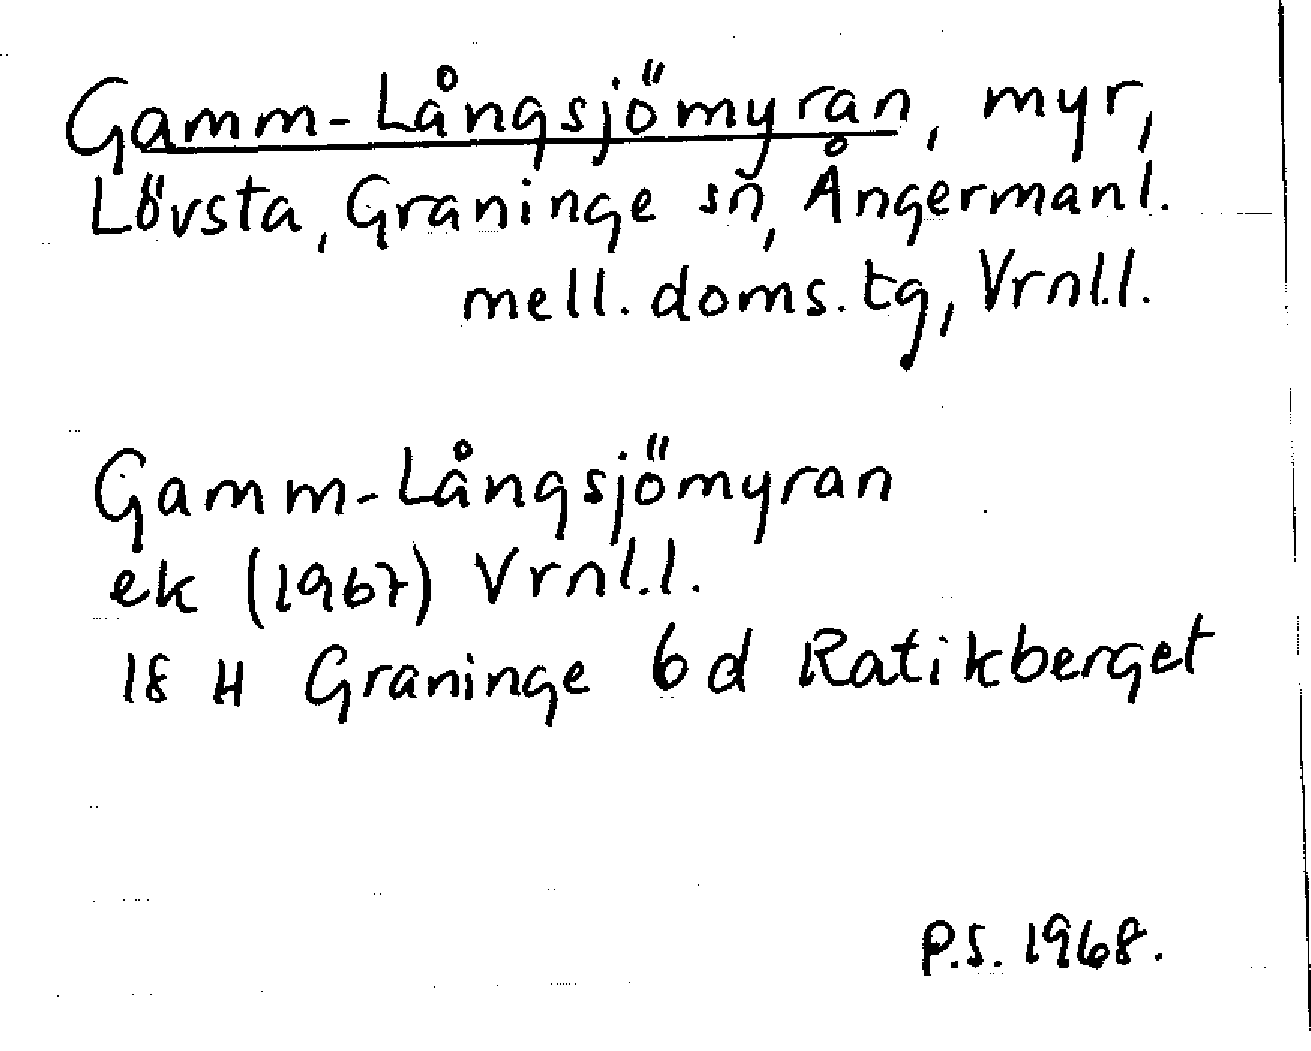 Gamm-Långsjömyran, myr,
Lövsta, Graninge sn, Ångermanl.
mell. doms. tg, Vrnl.l.
Gamm-Långsjömyran
ek (1967) Vrnl.l.
18 H Graninge 6d Ratikberget
P.S. 1968.